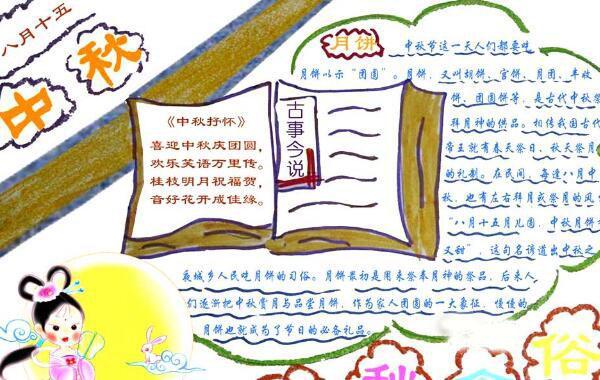 八月十五
中秋
《中秋抒怀》
喜迎中秋庆团圆，
欢乐笑语万里传。
桂枝明月祝福贺，
音好花开成佳缘。
古事今说
月饼 中秋节这一天人们都要吃
月饼以示“团圆”。月饼，又叫胡饼、宫饼、月团、丰收
饼、团圆饼等，是古代中秋祭
拜月神的供品。相传我国古代
帝王就有春天祭日、秋天祭月
的礼制。在民间，每逢八月中
秋，也有左右拜月或祭月的风俗
“八月十五月儿圆，中秋月饼香
又甜”，这句名谚道出中秋之
夜城乡人民吃月饼的习俗。月饼最初是用来祭奉月神的祭品，后来人
们逐渐把中秋赏月与品尝月饼，作为家人团圆的一大象征，慢慢的
月饼也就成为了节日的必备礼品。
秋 俗